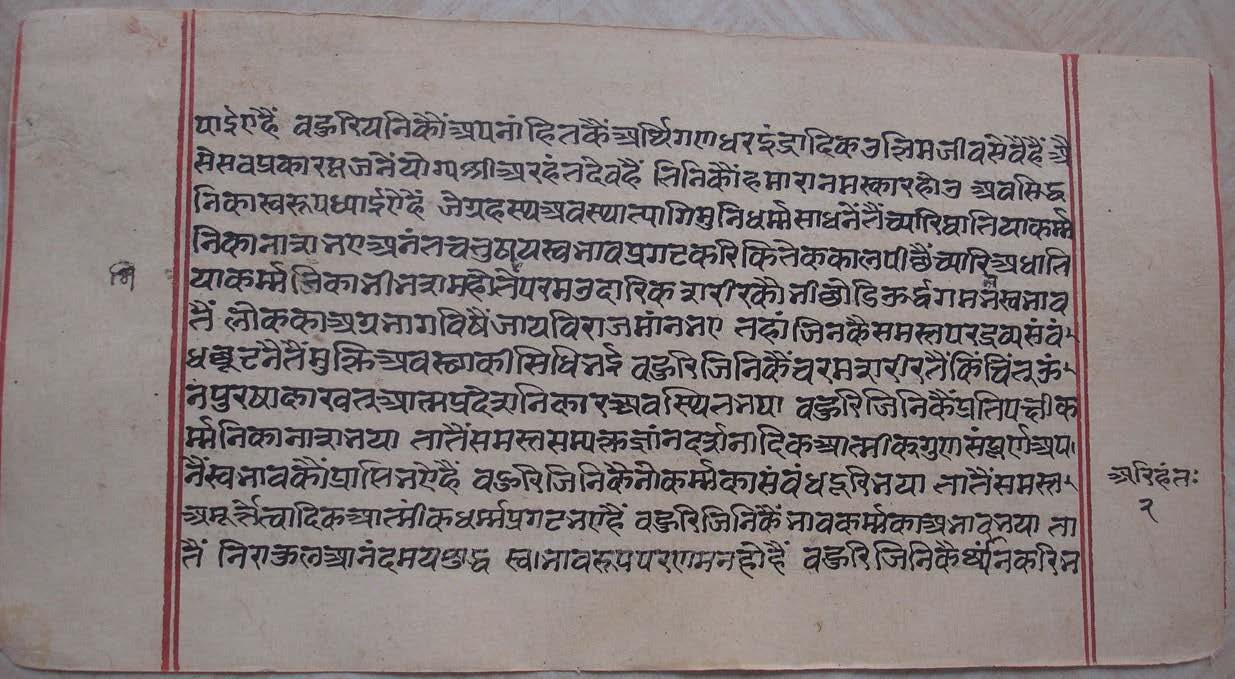 पाईएहैं वहुरियनिकौंअपनांहितकैंअर्थिगणधरइंद्रादिकउत्तिमजीवसेवैंहैं अै
सेसवप्रकारपूजनेंयोग्यश्रीअरहंतदेवहैं तिनिकौंहमारानमस्कारहोउ अवसिद्ध
निकास्वरूपध्याईऐहैं जेग्रहस्यअवस्थात्यागिमुनिधर्म्मसाधनेंतैंच्यारिघातियाकर्म्म
निकानाशभएअनंतचतुष्टयस्वभावप्रगटकरिकितेककालपीछैंच्यारिअघाति
याकर्म्मनिकाभीभश्महोतैपरमउदारिकशरीरकौभीछोडिऊर्द्धगमनस्वभाव
तैं लोककाअग्रभागविषैंजायविराजमांनभए तहांजिनकैसमस्तपरद्रव्यसंवं
धछूटनैतैंमुक्तिअवस्छाकीसिधिभई वहुरिजिनिकैंचरमशरीरतैंकिंचित्ऊं
नपुरषाकारवत्आत्मप्रदेशनिकारअवस्थितभया वहुरिजिनिकैंप्रतिपक्षीक
र्म्मनिकानाशभया तातैंसमस्तसम्यक्तज्ञांनदर्शनादिकआत्मीकगुणसंपूर्णअप
नैंस्वभावकौंप्राप्तिभऐहैं वहुरिजिनिकैनोकर्म्मकासंवंधदूरिभया तातैंसमस्त
अमूर्त्तत्वादिकआत्मींकधर्म्मप्रगटभएहैं वहुरिजिनिकैंभावकर्म्मकाअभावभया ता
तैं निराऊलआनंदमयशुद्ध स्वाभावरूपपरणमनहोहैं वहुरिजिनिकैध्यांनकरिभ
अरिहंतः
२